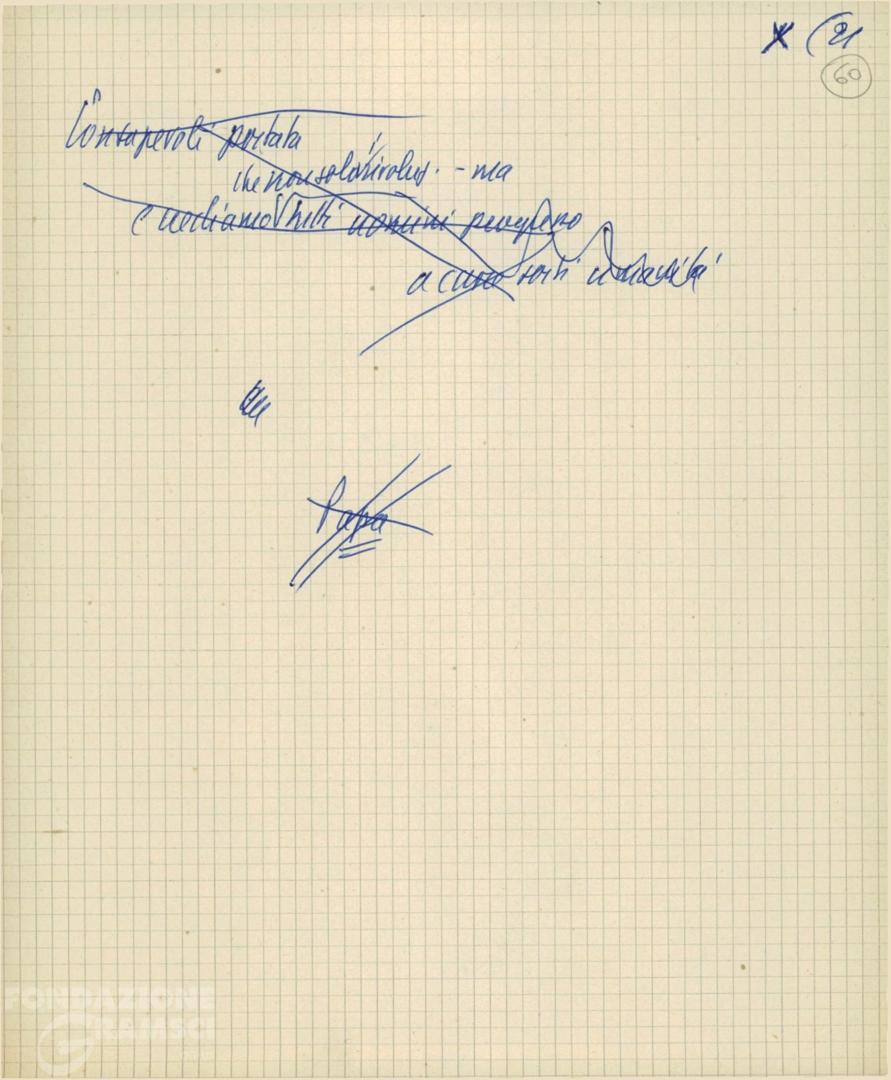 X (21
60
Consapevoli portata
che non solo i rivoluz. - ma
e vediamo tutti uomini progresso
a cuore sorti umanità
Papa
FONDAZIONE
GRAMSCI